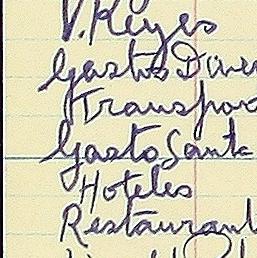 V. Reyes
Gastos Diver
Transpor
Gasto Santa
Hoteles
Restaurant